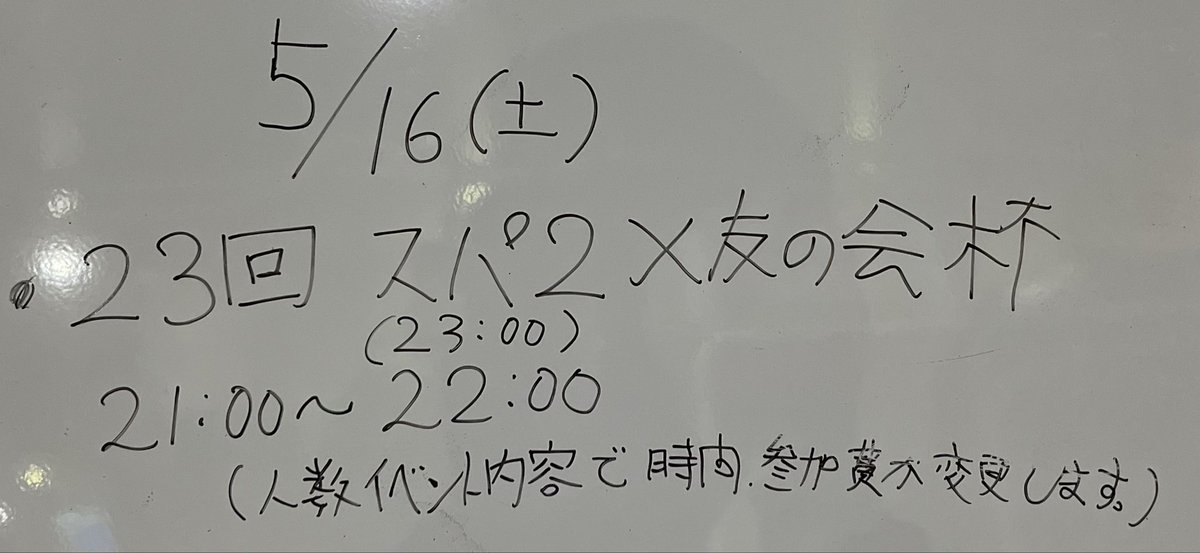 5/16(土)
・23回 スパ2×友の会杯
(23:00)
21:00〜22:00
(人数イベント内容で時間、参加費が変更します。)